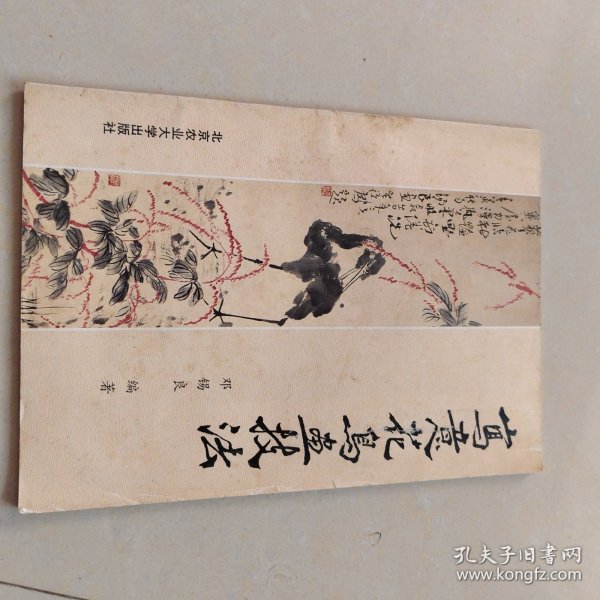 寫意花鳥畫技法
邓锡良 编著
北京农业大学出版社
孔夫子旧书网
www.kongfz.com